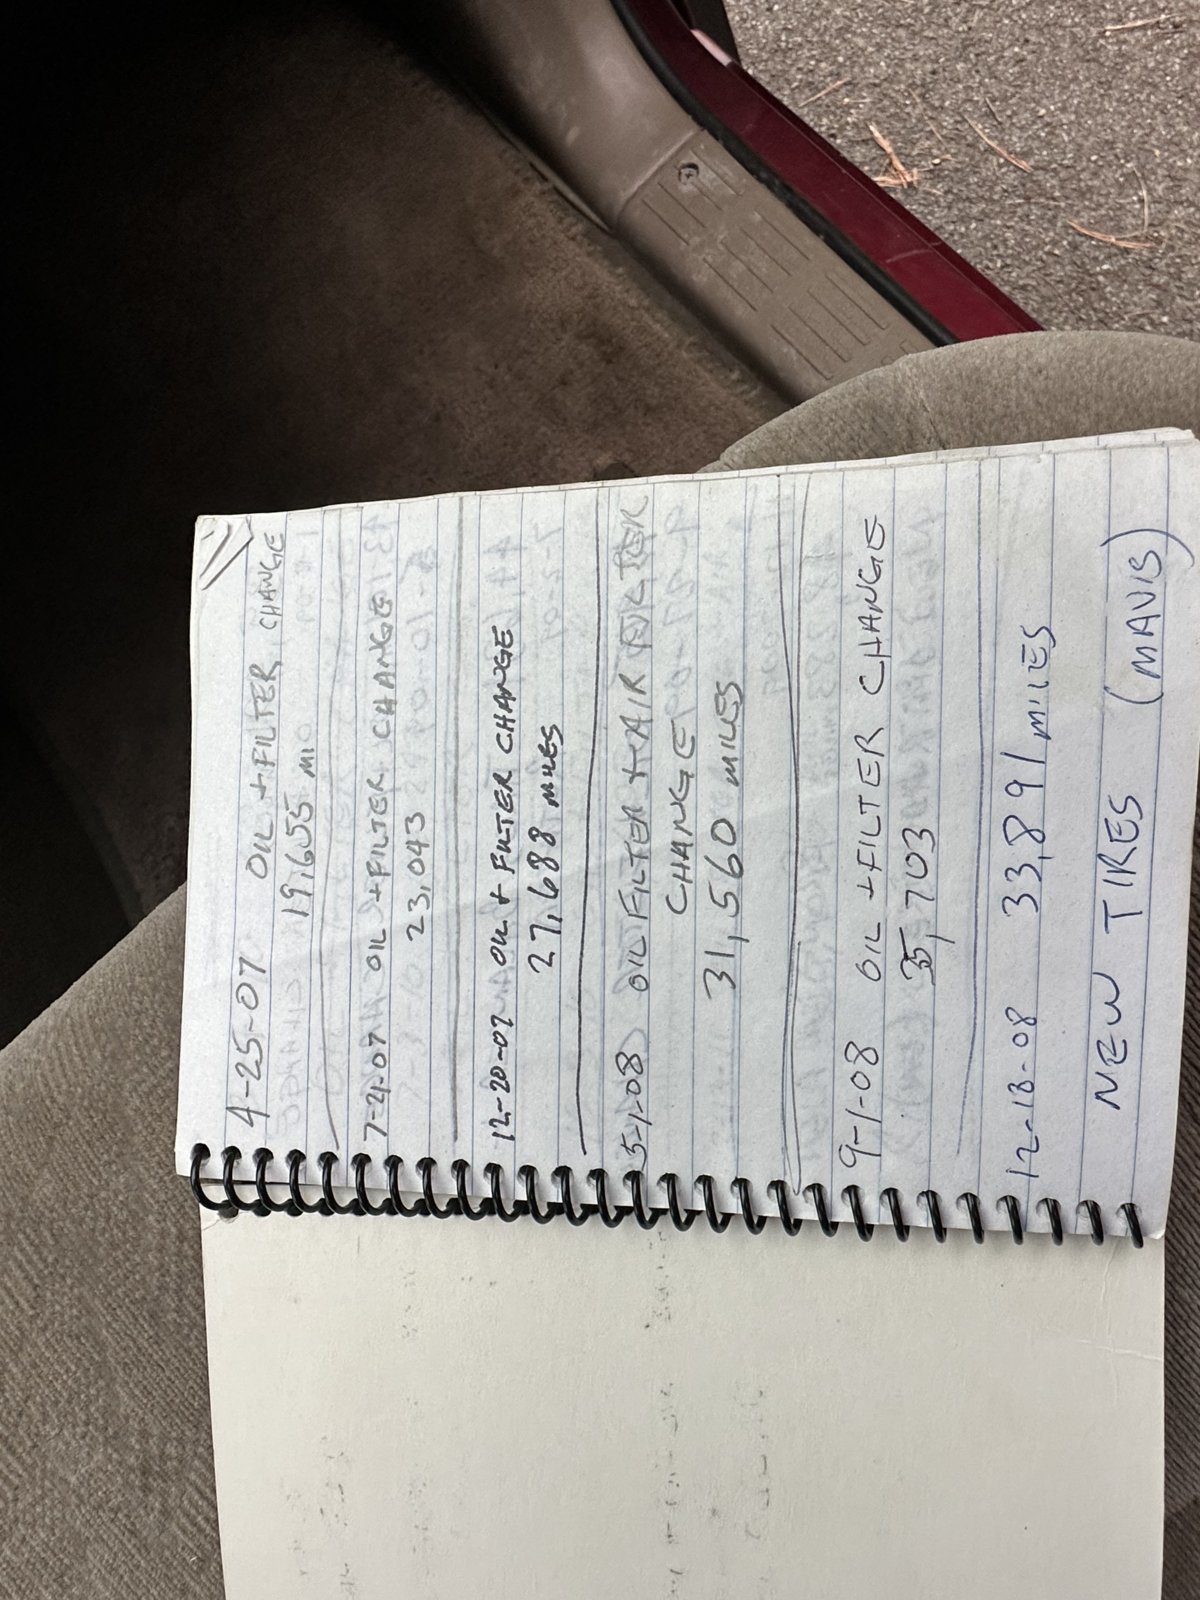 4-25-07 OIL + FILTER CHANGE
19,655 MI
7-21-07 OIL + FILTER CHANGE
23,043
12-20-07 OIL + FILTER CHANGE
27,688 MILES
5-1-08 OIL FILTER + AIR FILTER
CHANGE
31,560 MILES
9-1-08 OIL + FILTER CHANGE
35,703
12-13-08 33,891 MILES
NEW TIRES (MAVIS)